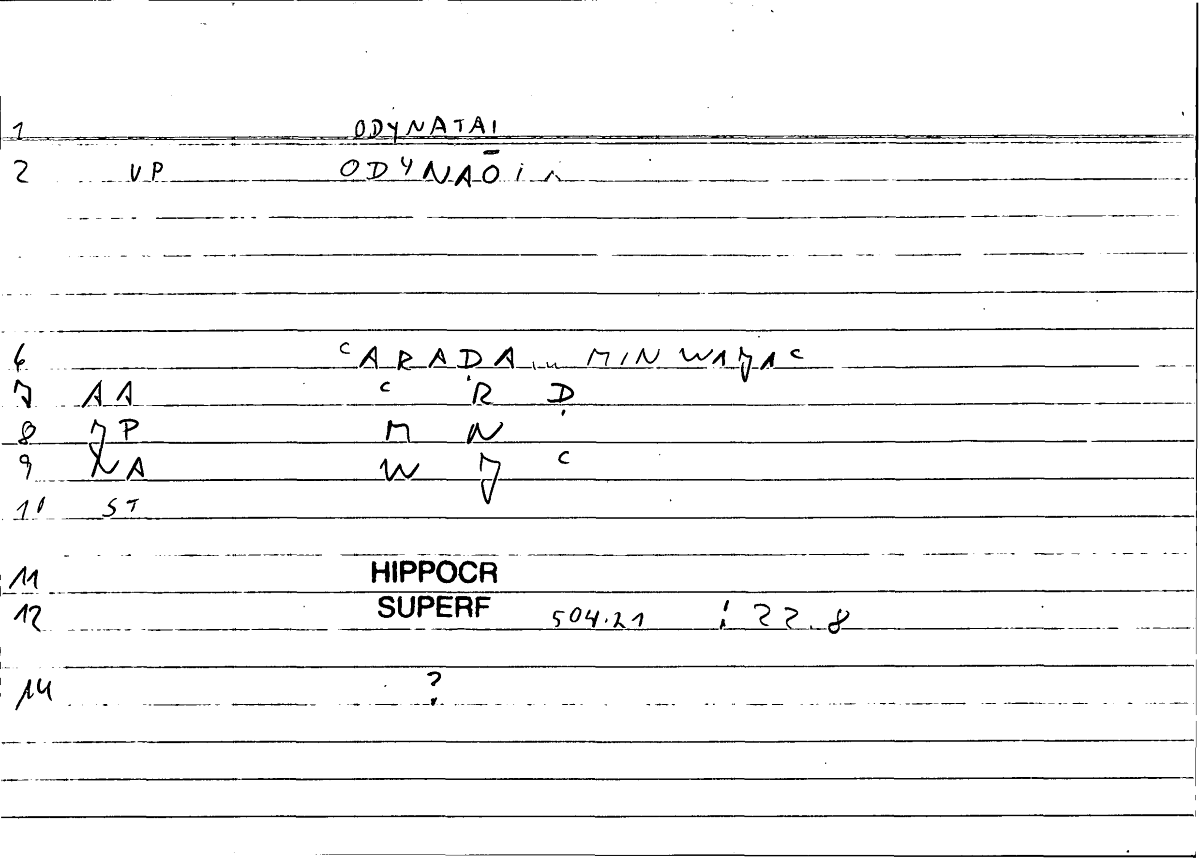 1 ODYNATAI
2 VP ODYNAŌ
6 ᶜARADA MIN WAJAᶜ
7 AA ᶜ R Ḍ
8 JP M N
9 NA W J ᶜ
10 ST
11 HIPPOCR
12 SUPERF 504.21 : 22.8
14 ?